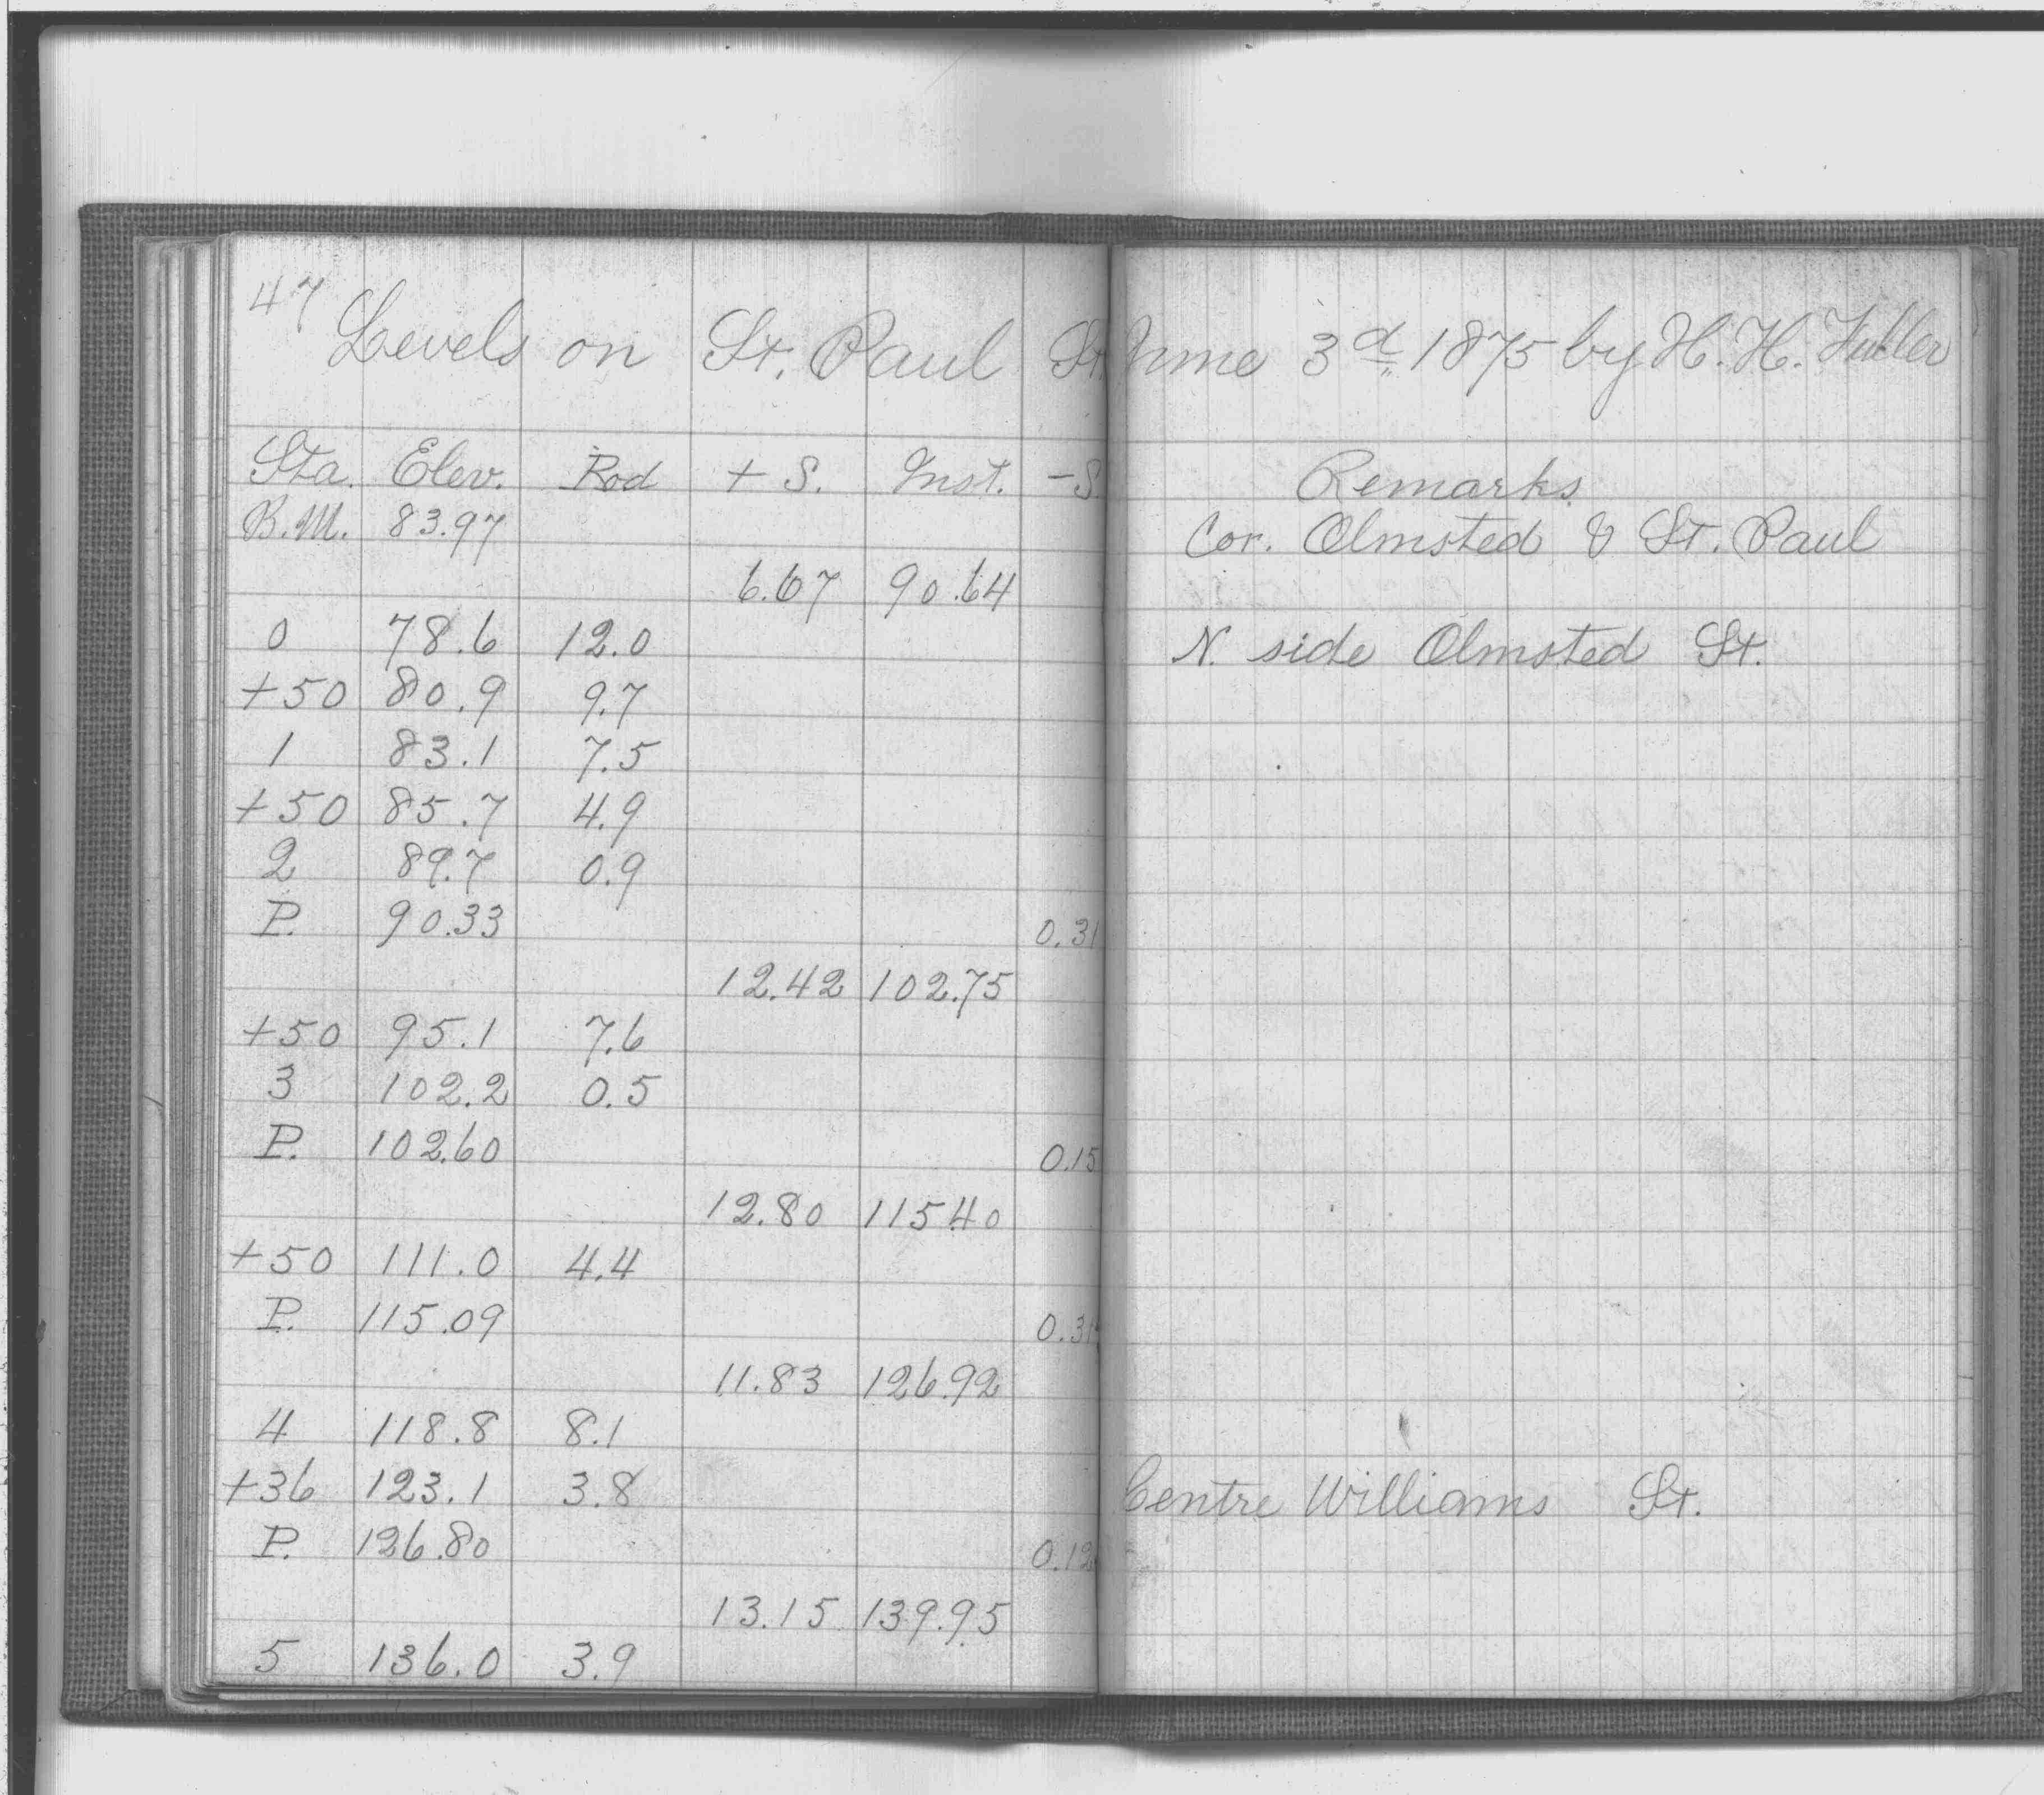 47
Levels on St. Paul St. June 3d 1875 by H. H. Fuller
Sta. Elev. Rod + S. Inst. - S. Remarks
B.M. 83.97 Cor. Olmsted & St. Paul
6.67 90.64
0 78.6 12.0 N. side Olmsted St.
+50 80.9 9.7
1 83.1 7.5
+50 85.7 4.9
2 89.7 0.9
P. 90.33 0.31
12.42 102.75
+50 95.1 7.6
3 102.2 0.5
P. 102.60 0.15
12.80 115.40
+50 111.0 4.4
P. 115.09 0.31
11.83 126.92
4 118.8 8.1
+36 123.1 3.8 Centre Williams St.
P. 126.80 0.12
13.15 139.95
5 136.0 3.9